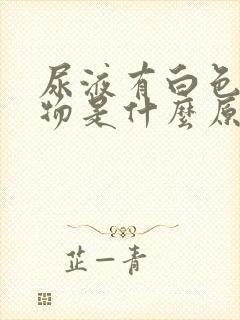 尿液有白色
物是什麼原
芷一青